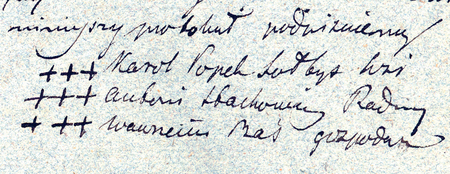 niniejszy protokuł podpisujemy
+++ Karol Popek Sołtys wsi
+++ Antoni Stachowicz Radny
+++ Wawrzeniec Baś gospodarz